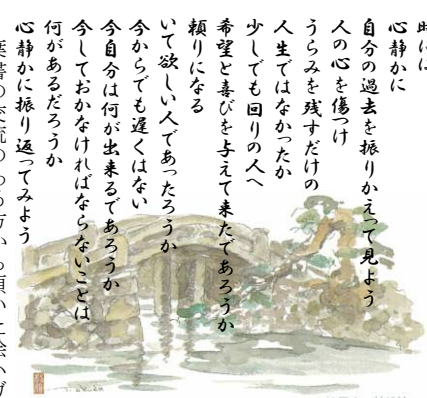 時には
心静かに
自分の過去を振りかえって見よう
人の心を傷つけ
うらみを残すだけの
人生ではなかったか
少しでも回りの人へ
希望と喜びを与えて来たであろうか
頼りになる
いて欲しい人であったろうか
今からでも遅くはない
今自分は何が出来るであろうか
今しておかなければならないことは
何があるだろうか
心静かに振り返ってみよう